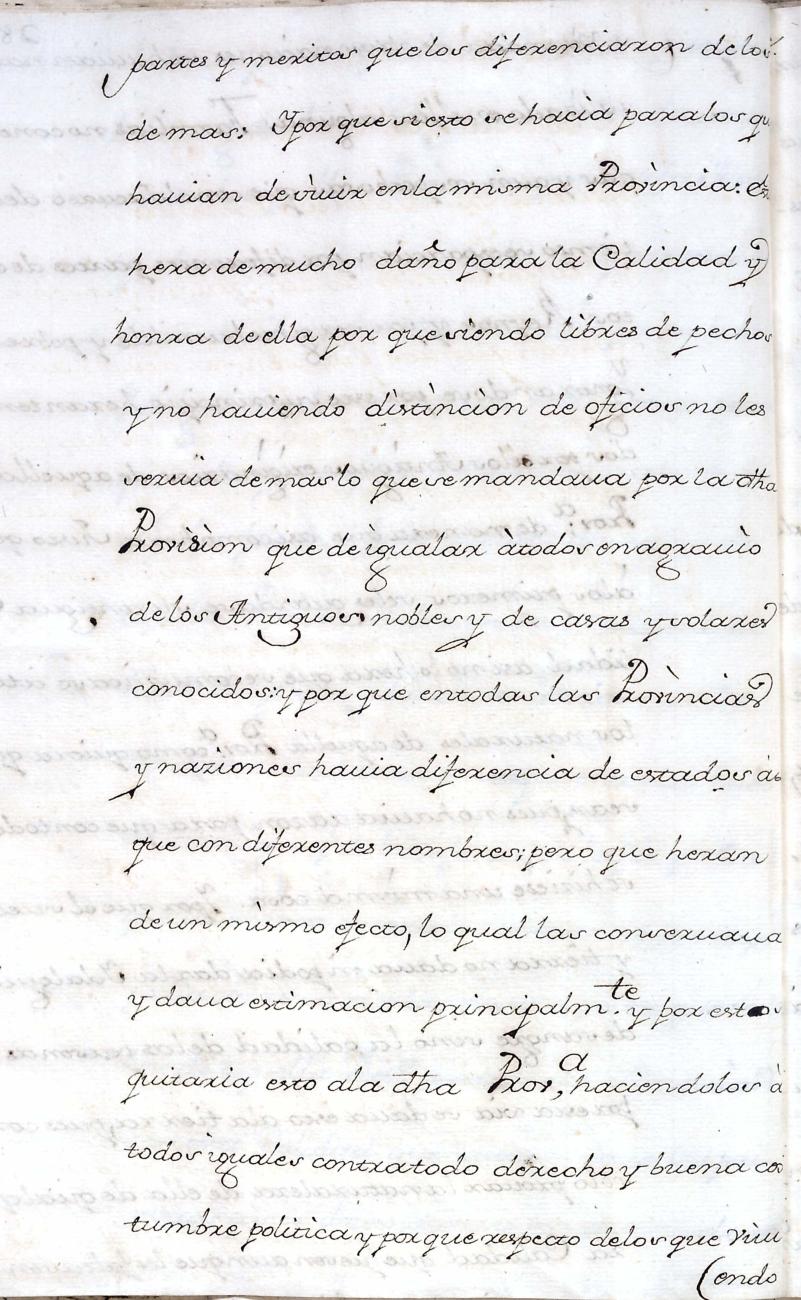 partes y meritos que los diferenciaron de los
demas: Y por que si esto se hacia para los qu
hauian de vivir en la misma Provincia:
hera de mucho daño para la Calidad y
honra de ella por que siendo libres de pechos
y no hauiendo distincion de oficios no les
seruia demas lo que se mandaua por la dha
Provision que de igualar à todos en agrauio
de los Antiguos nobles y de casas y solares
conocidos: y por que en todas las Provincias
y naziones hauia diferencia de estados à
que con diferentes nombres; pero que heran
de un mismo efecto, lo qual las conseruaua
y daua estimacion principalm.te y por esto
quitaria esto a la dha Prov,a haciendolos à
todos iguales contra todo derecho y buena cos
tumbre politica y por que respecto de los que viui
(endo